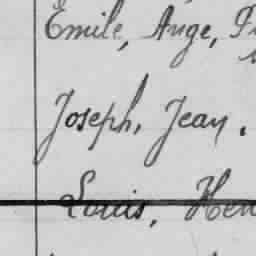 Emile, Ange,
Joseph, Jean.
Louis,